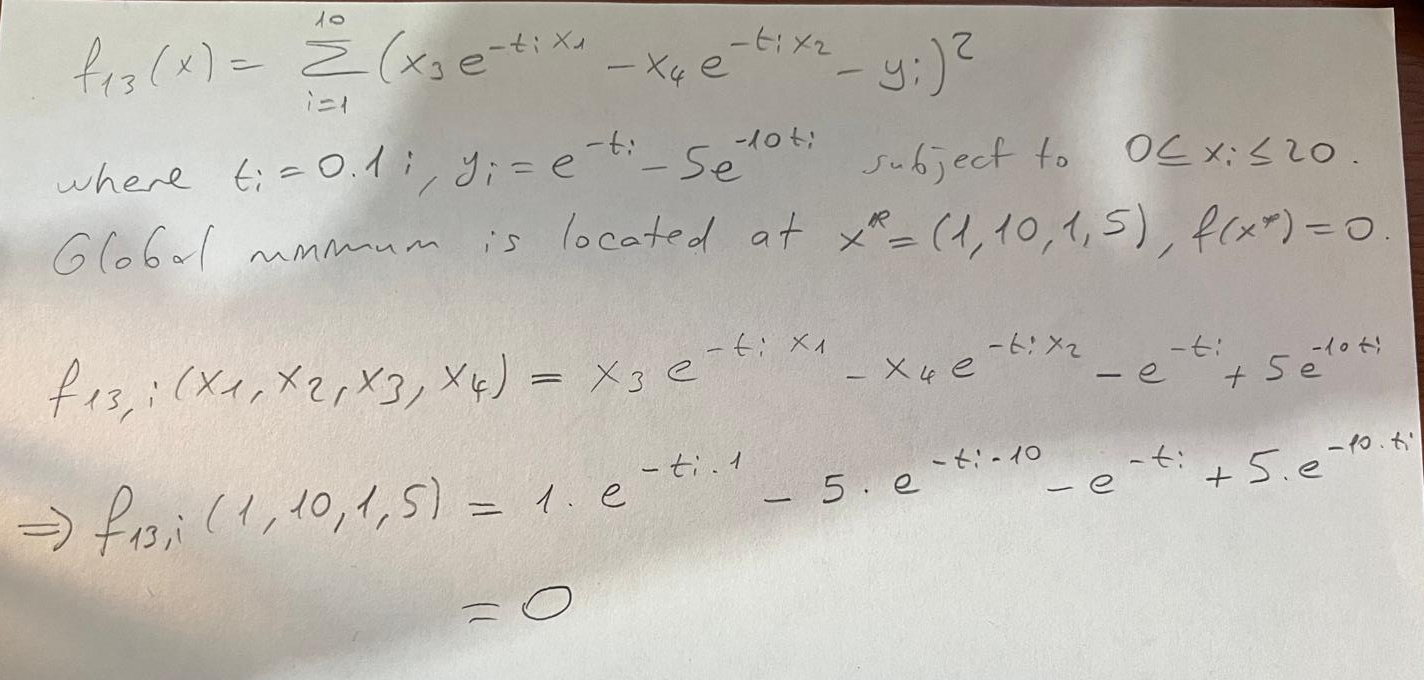 f₁₃(x) = Σ_{i=1}^{10} (x₃e^{-tᵢx₁} - x₄e^{-tᵢx₂} - yᵢ)²
where tᵢ = 0.1i, yᵢ = e^{-tᵢ} - 5e^{-10tᵢ} subject to 0 ≤ xᵢ ≤ 20.
Global minimum is located at x* = (1, 10, 1, 5), f(x*) = 0.
f₁₃,ᵢ(x₁, x₂, x₃, x₄) = x₃e^{-tᵢx₁} - x₄e^{-tᵢx₂} - e^{-tᵢ} + 5e^{-10tᵢ}
⇒ f₁₃,ᵢ(1, 10, 1, 5) = 1·e^{-tᵢ·1} - 5·e^{-tᵢ·10} - e^{-tᵢ} + 5·e^{-10·tᵢ}
= 0